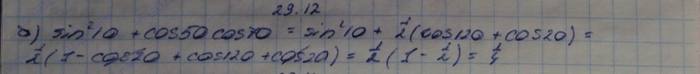 29.12
б) sin²10 + cos50 cos70 = sin²10 + ½(cos120 + cos20) =
½(1 - cos20 + cos120 + cos20) = ½(1 - ½) = ¼